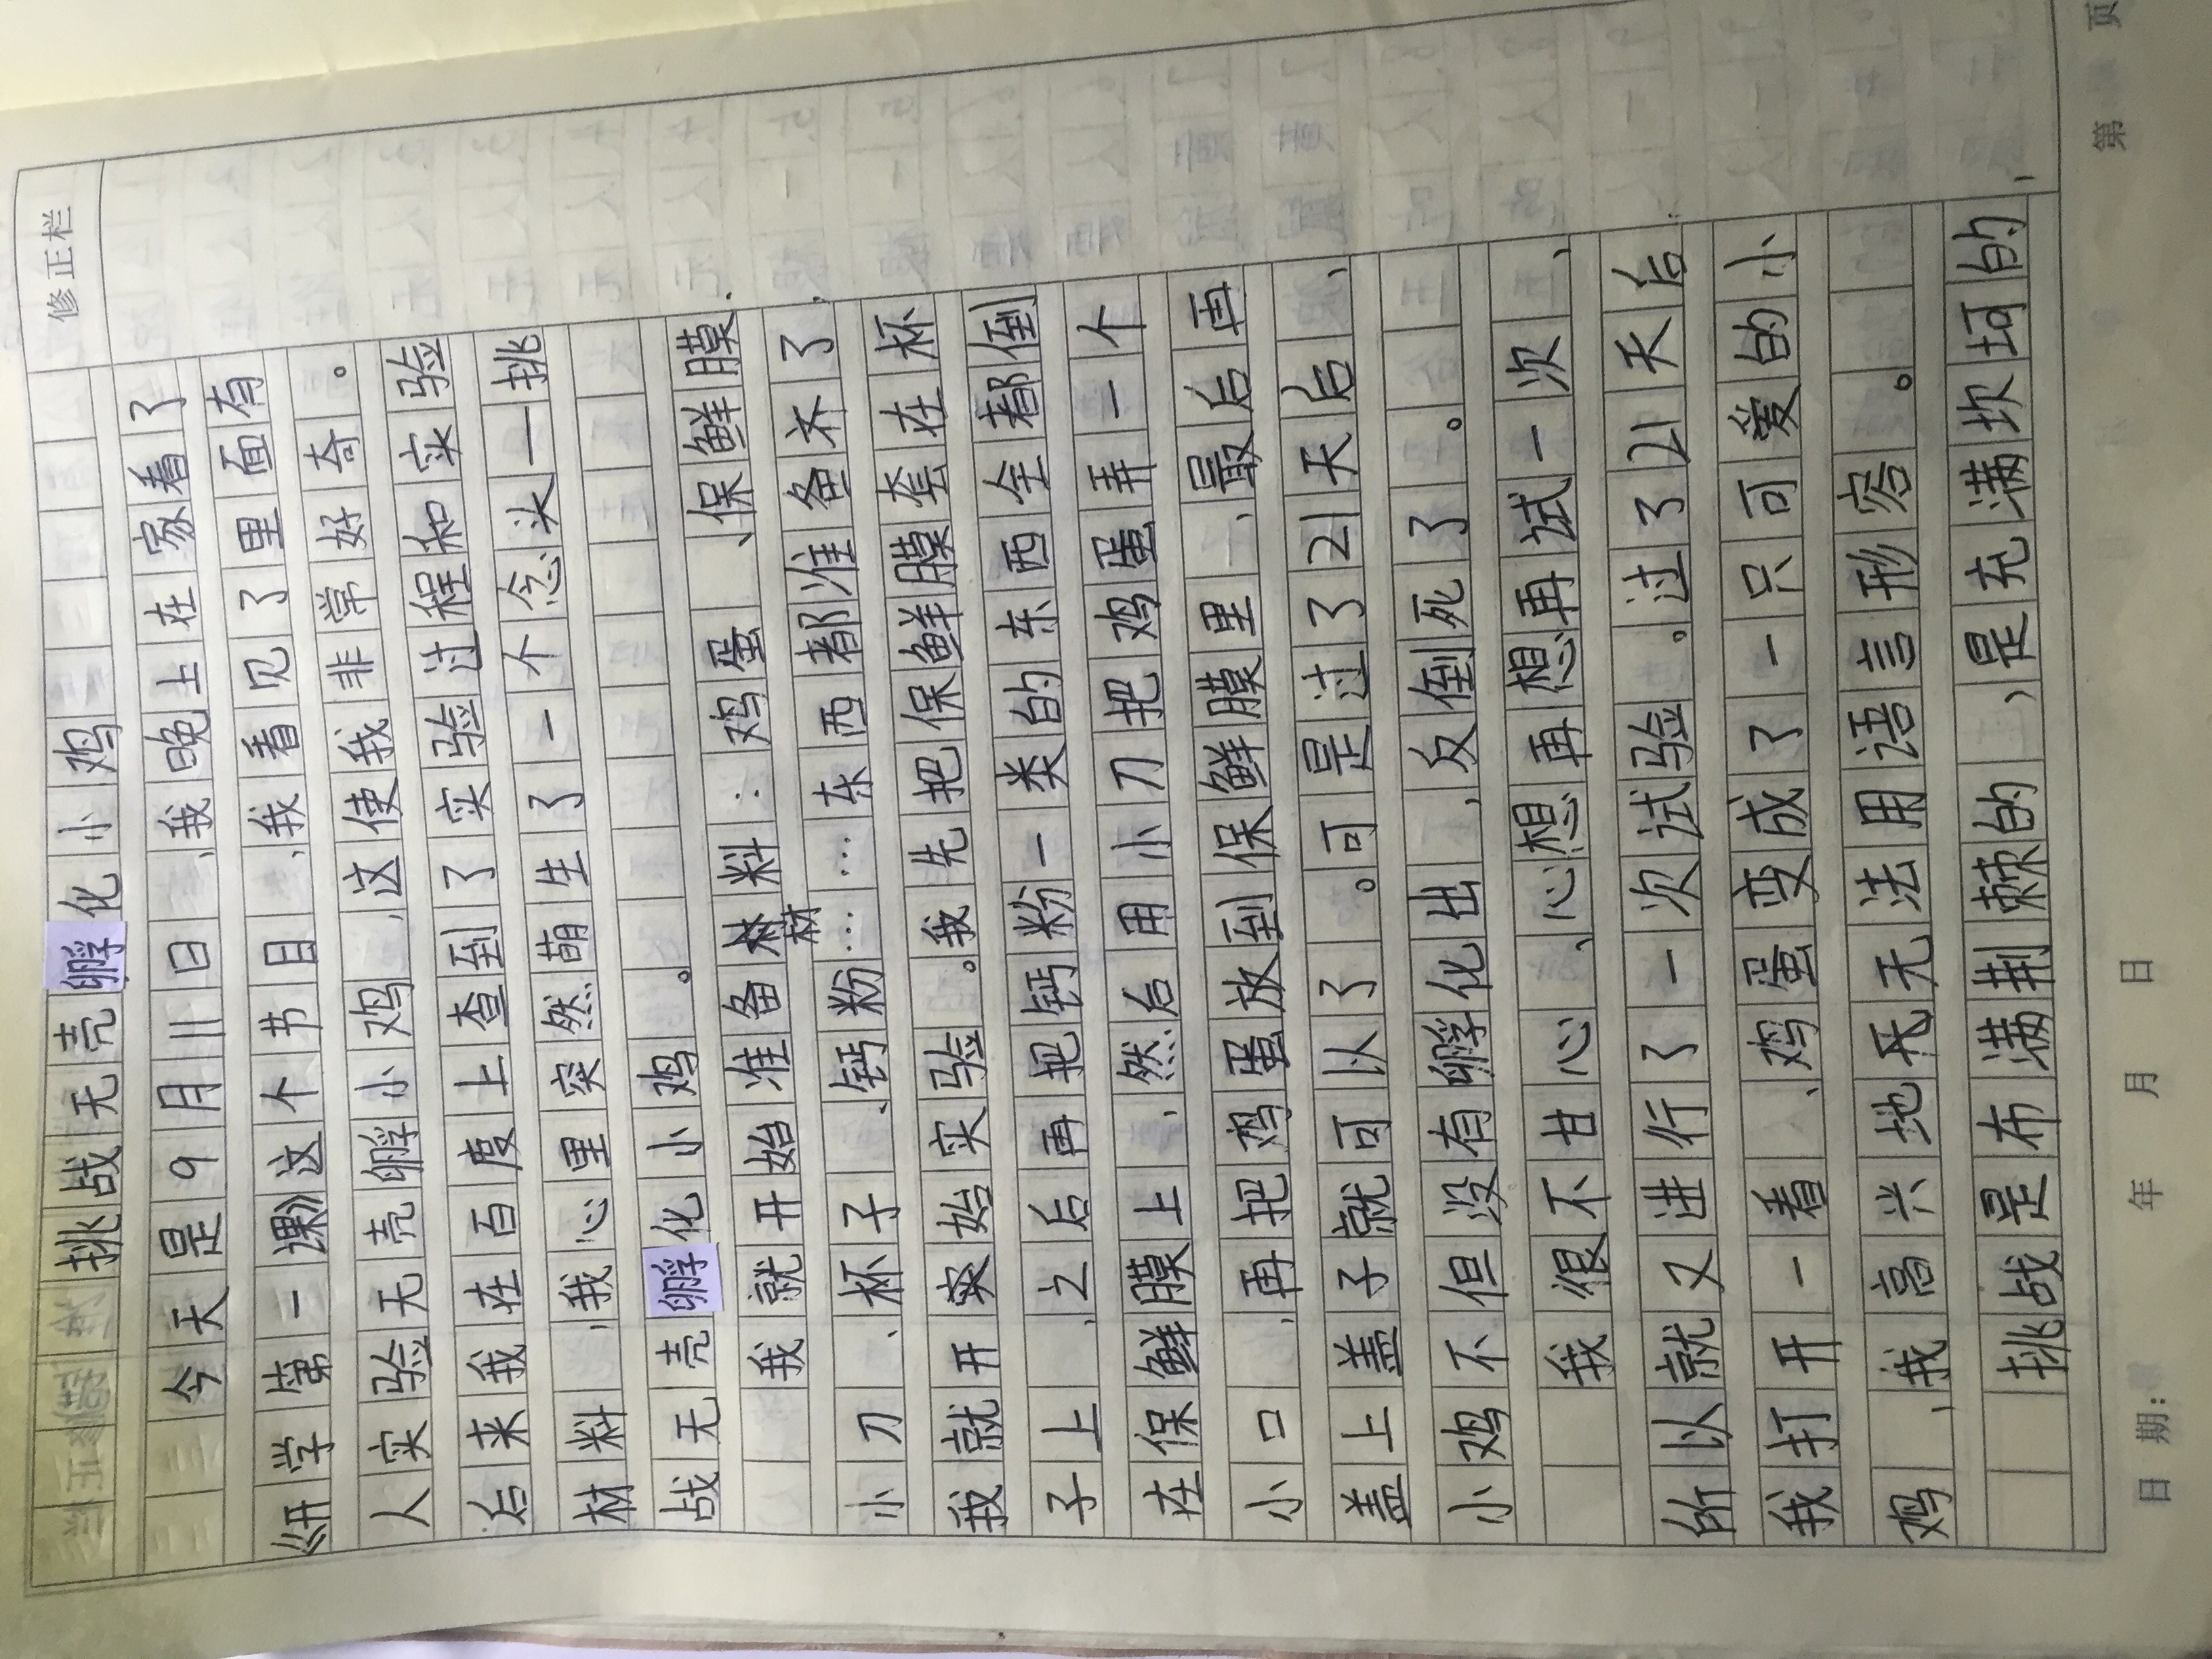 修正栏
挑战无壳孵化小鸡
今天是9月11日，我晚上在家看了
《开学第一课》这个节目，我看见了里面有
人实验无壳孵小鸡，这使我非常好奇。
后来我在百度上查到了实验过程和实验
材料，我心里突然萌生了一个念头—挑
战无壳孵化小鸡。
我就开始准备材料：鸡蛋、保鲜膜、
小刀、杯子、钙粉……东西都准备齐了，
我就开始实验。我先把保鲜膜套在杯
子上，之后再把钙粉一类的东西全都倒
在保鲜膜上，然后用小刀把鸡蛋弄一个
小口，再把鸡蛋放到保鲜膜里，最后再
盖上盖子就可以了。可是过了21天后，
小鸡不但没有孵化出，反倒死了。
我很不甘心，心想再想再试一次，
所以就又进行了一次试验。过了21天后，
我打开一看，鸡蛋变成了一只可爱的小
鸡，我高兴地无法用语言形容。
挑战是布满荆棘的，是充满坎坷的，
日期： 年 月 日
第 页